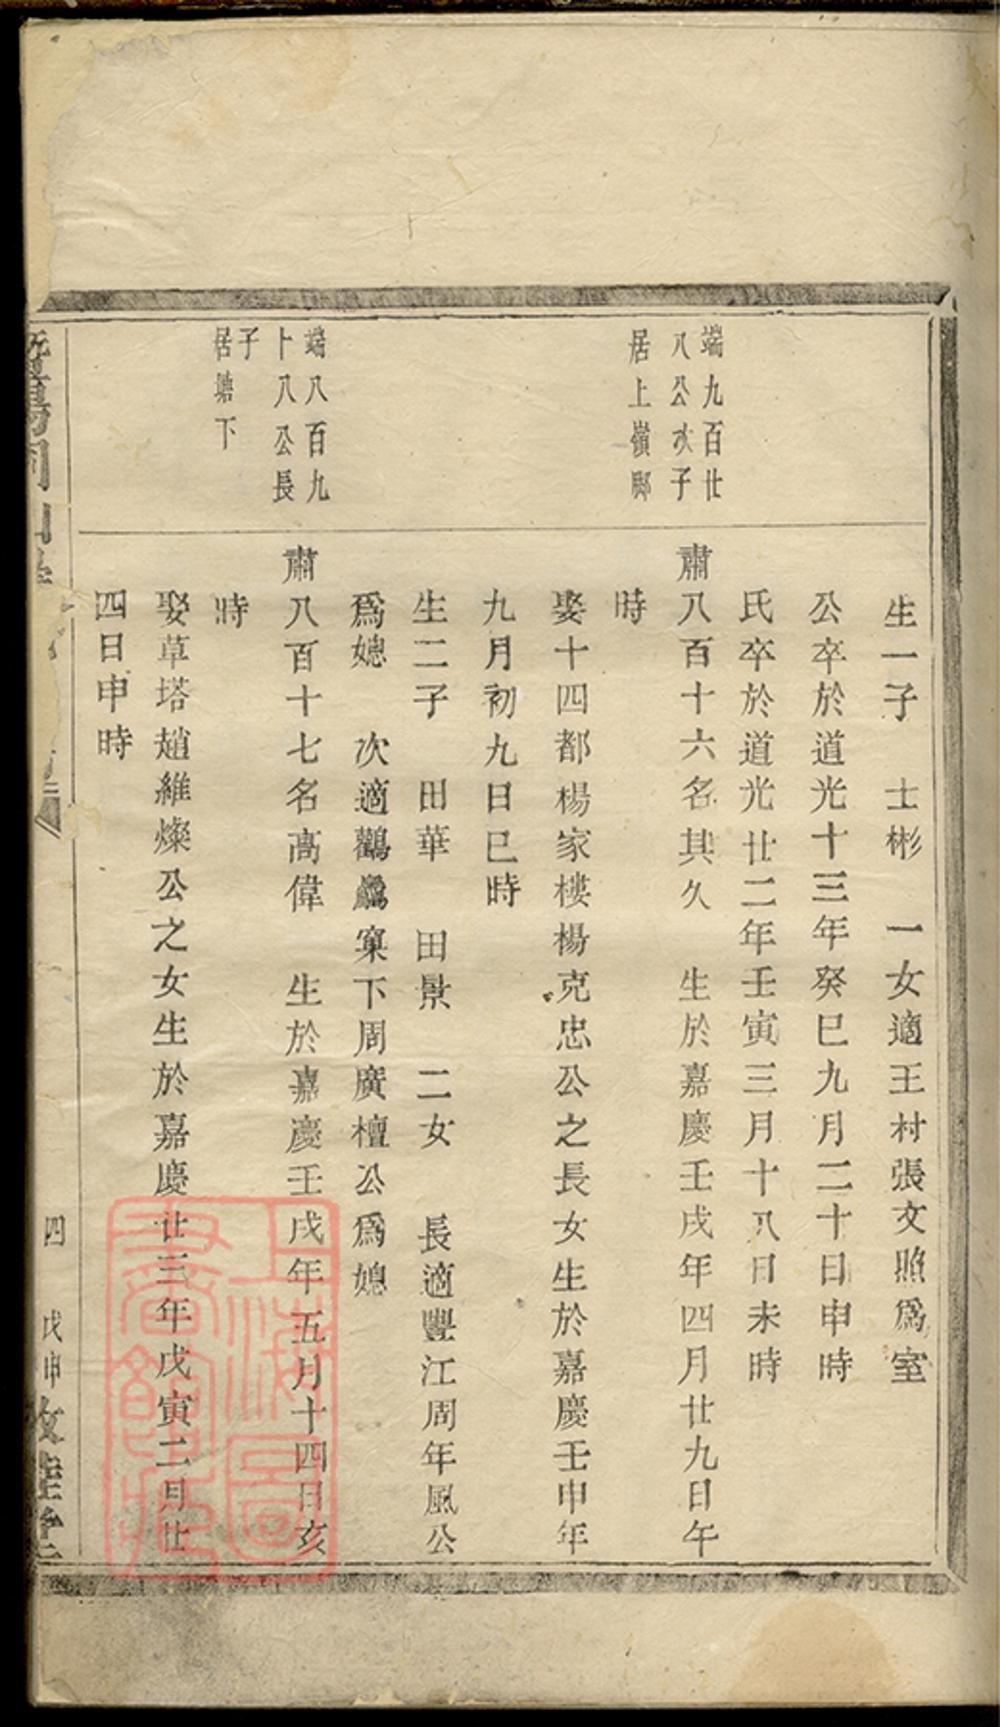 生一子　士彬　一女適王村張文照爲室
公卒於道光十三年癸巳九月二十日申時
氏卒於道光廿二年壬寅三月十八日未時
端九百廿
八公次子
居上嶺腳
肅八百十六名其久　生於嘉慶壬戌年四月廿九日午
時
娶十四都楊家樓楊克忠公之長女生於嘉慶壬申年
九月初九日巳時
生二子　田華　田景　二女　長適豐江周年風公
爲媳　次適鸛鷀窠下周廣檀公爲媳
端八百九
卜八公長
子
居塘下
肅八百十七名高偉　生於嘉慶壬戌年五月十四日亥
時
娶草塔趙維燦公之女生於嘉慶廿三年戊寅二月廿
四日申時
四　戊申
上海圖書館藏